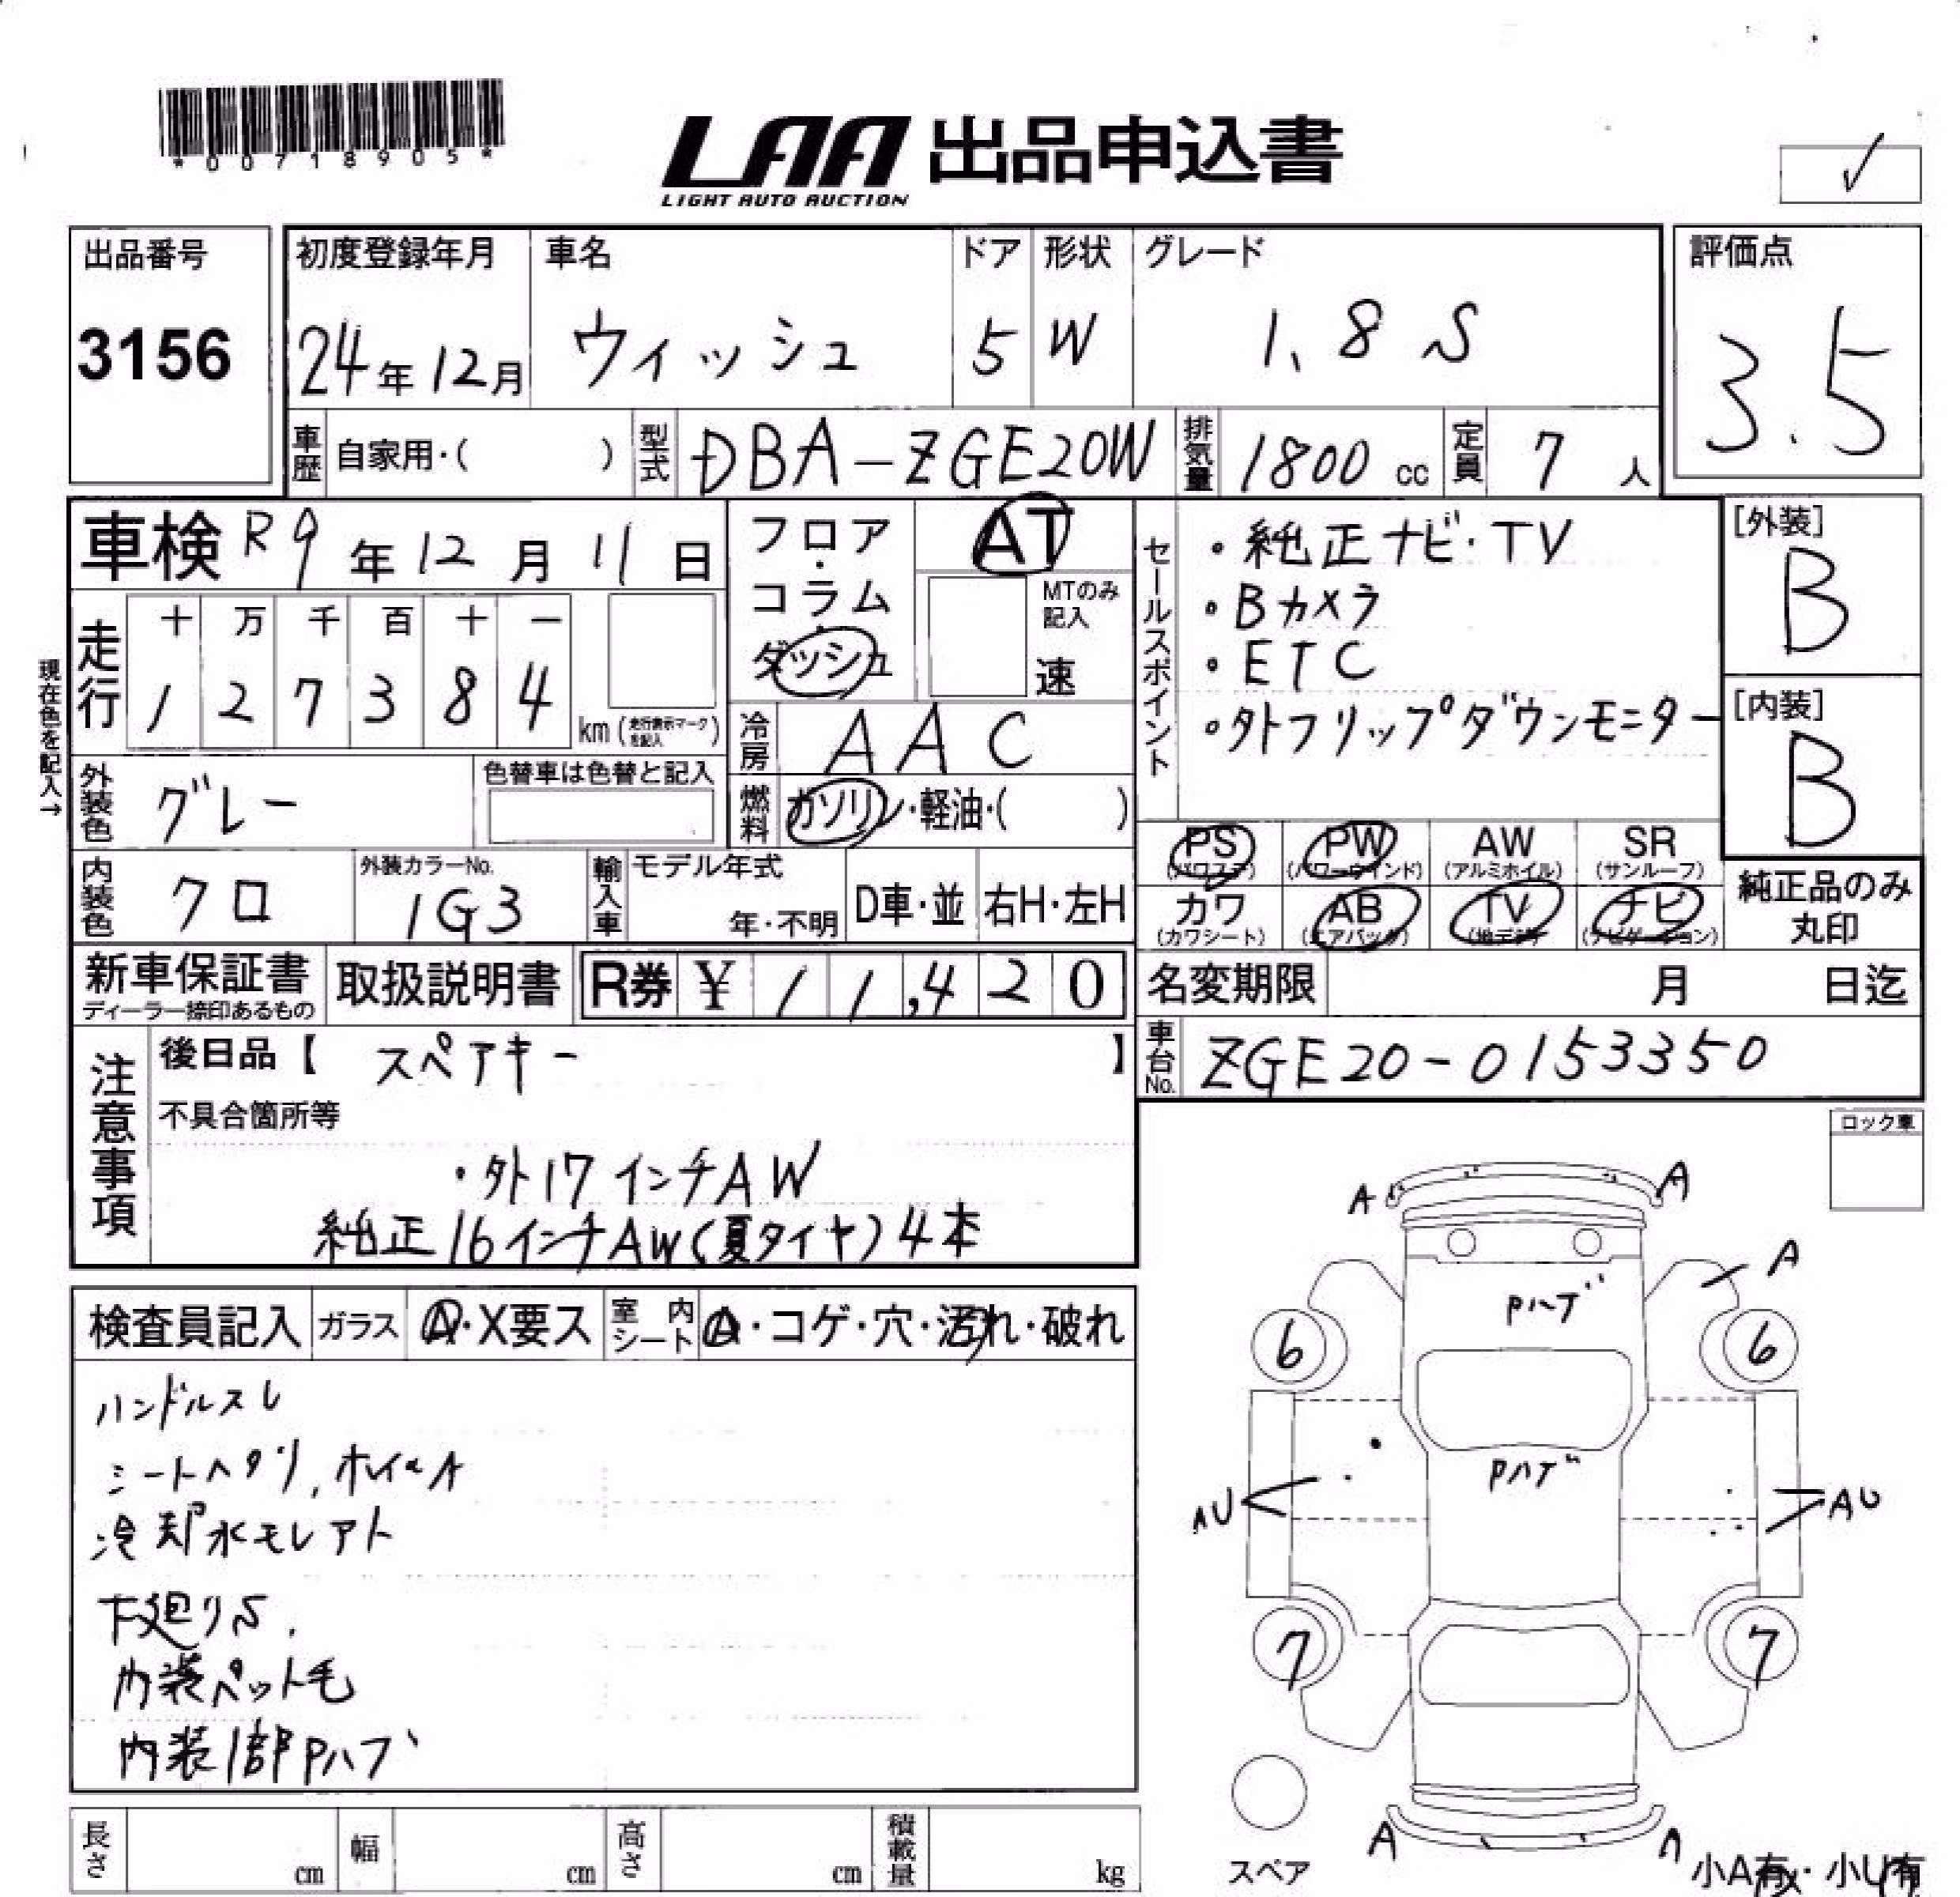 *00718905*
LAA 出品申込書
LIGHT AUTO AUCTION
✓
出品番号
3156
初度登録年月
24年12月
車名
ウィッシュ
ドア
5
形状
W
グレード
1.8 S
評価点
3.5
車歴 自家用・( )
型式 DBA-ZGE20W
排気量 1800 cc
定員 7 人
車検 R9年12月11日
現在色を記入→
走行
十 万 千 百 十 一
1 2 7 3 8 4
km (走行表示マークを記入)
フロア・コラム・ダッシュ
AT
MTのみ記入
速
冷房 AAC
燃料 ガソリン・軽油・( )
外装色 グレー
色替車は色替と記入
内装色 クロ
外装カラーNo.
1G3
輸入車
モデル年式
年・不明
D車・並
右H・左H
セールスポイント
・純正ナビ・TV
・Bカメラ
・ETC
・外フリップダウンモニター
[外装]
B
[内装]
B
PS (パワステ) PW (パワーウインド) AW (アルミホイル) SR (サンルーフ)
カワ (カワシート) AB (エアバック) TV (地デジ) ナビ (ナビゲーション)
純正品のみ丸印
新車保証書
ディーラー捺印あるもの
取扱説明書
R券 ¥ 11,420
名変期限 月 日迄
車台No. ZGE20-0153350
注意事項
後日品【 スペアキー 】
不具合箇所等
・外17インチAW
純正16インチAW(夏タイヤ)4本
ロック車
検査員記入
ガラス A・X要ス
室内シート A・コゲ・穴・汚れ・破れ
ハンドルスレ
シートヘタリ, ホイールA
冷却水モレアト
下廻りS.
内装ペット毛
内装1部Pハゲ
A A
A
Pハゲ
6 6
Pハゲ
AU AU
7 7
A
スペア
小A有・小U有
長さ cm
幅 cm
高さ cm
積載量 kg